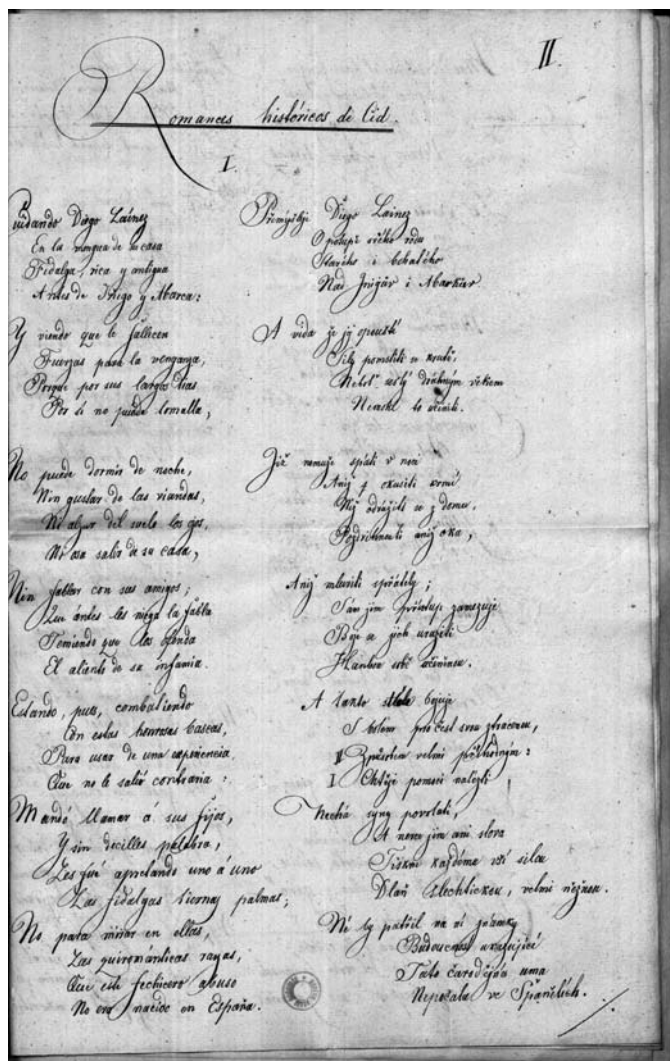 II.
Romances históricos de Cid.
I.
Cuidando Diego Laínez
En la mengua de su casa
Fidalga, rica y antigua
Antes de Iñigo y Abarca:
Y viendo que le fallecen
Fuerzas para la venganza,
Porque por sus largos dias
Por si no puede tomalla,
No puede dormir de noche,
Nin gustar de las viandas,
Ni alzar del suelo los ojos,
No osa salir de su casa,
Nin fablar con sus amigos;
Que ántes les niega la fabla
Temiendo que les ofenda
El aliento de su infamia.
Estando, pues, combatiendo
Con estas honrosas bascas,
Para usar de una esperiencia
Que no le salió contraria:
Mandó llamar á sus fijos,
Y sin decilles palabra,
Les fué apretando uno á uno
Las fidalgas tiernas palmas;
No para mirar en ellas,
Las quirománticas rayas,
Que este fechicero abuso
No era nacido en España.
Přemýšleje Diego Lainez
O potupě svého rodu
Starého i bohatého
Nad
A vida že jej opouští
Síly pomstíti se
Neboť sešlý
Nemůže to učiniti.
Již nemůže spáti v noci
Aniž
se z domu.
Pozdvihnouti aniž oka,
Aniž mluviti s přátely;
Sám jim přístup zamezuje
Boje se jich uraziti
Hanbou
A tanto bojuje
S bolem pro čest svou ztracenou,
II Způsobem velmi příhodným:
I Chtěje pomoci nalézti
Nechá syny povolati,
A nerce jim ani slova
Tiskne každému vší silou
Dlaň šlechtickou, velmi něžnou.
Né by patřil na ní
Budoucnost
Tato čarodějná
ve Španělích.